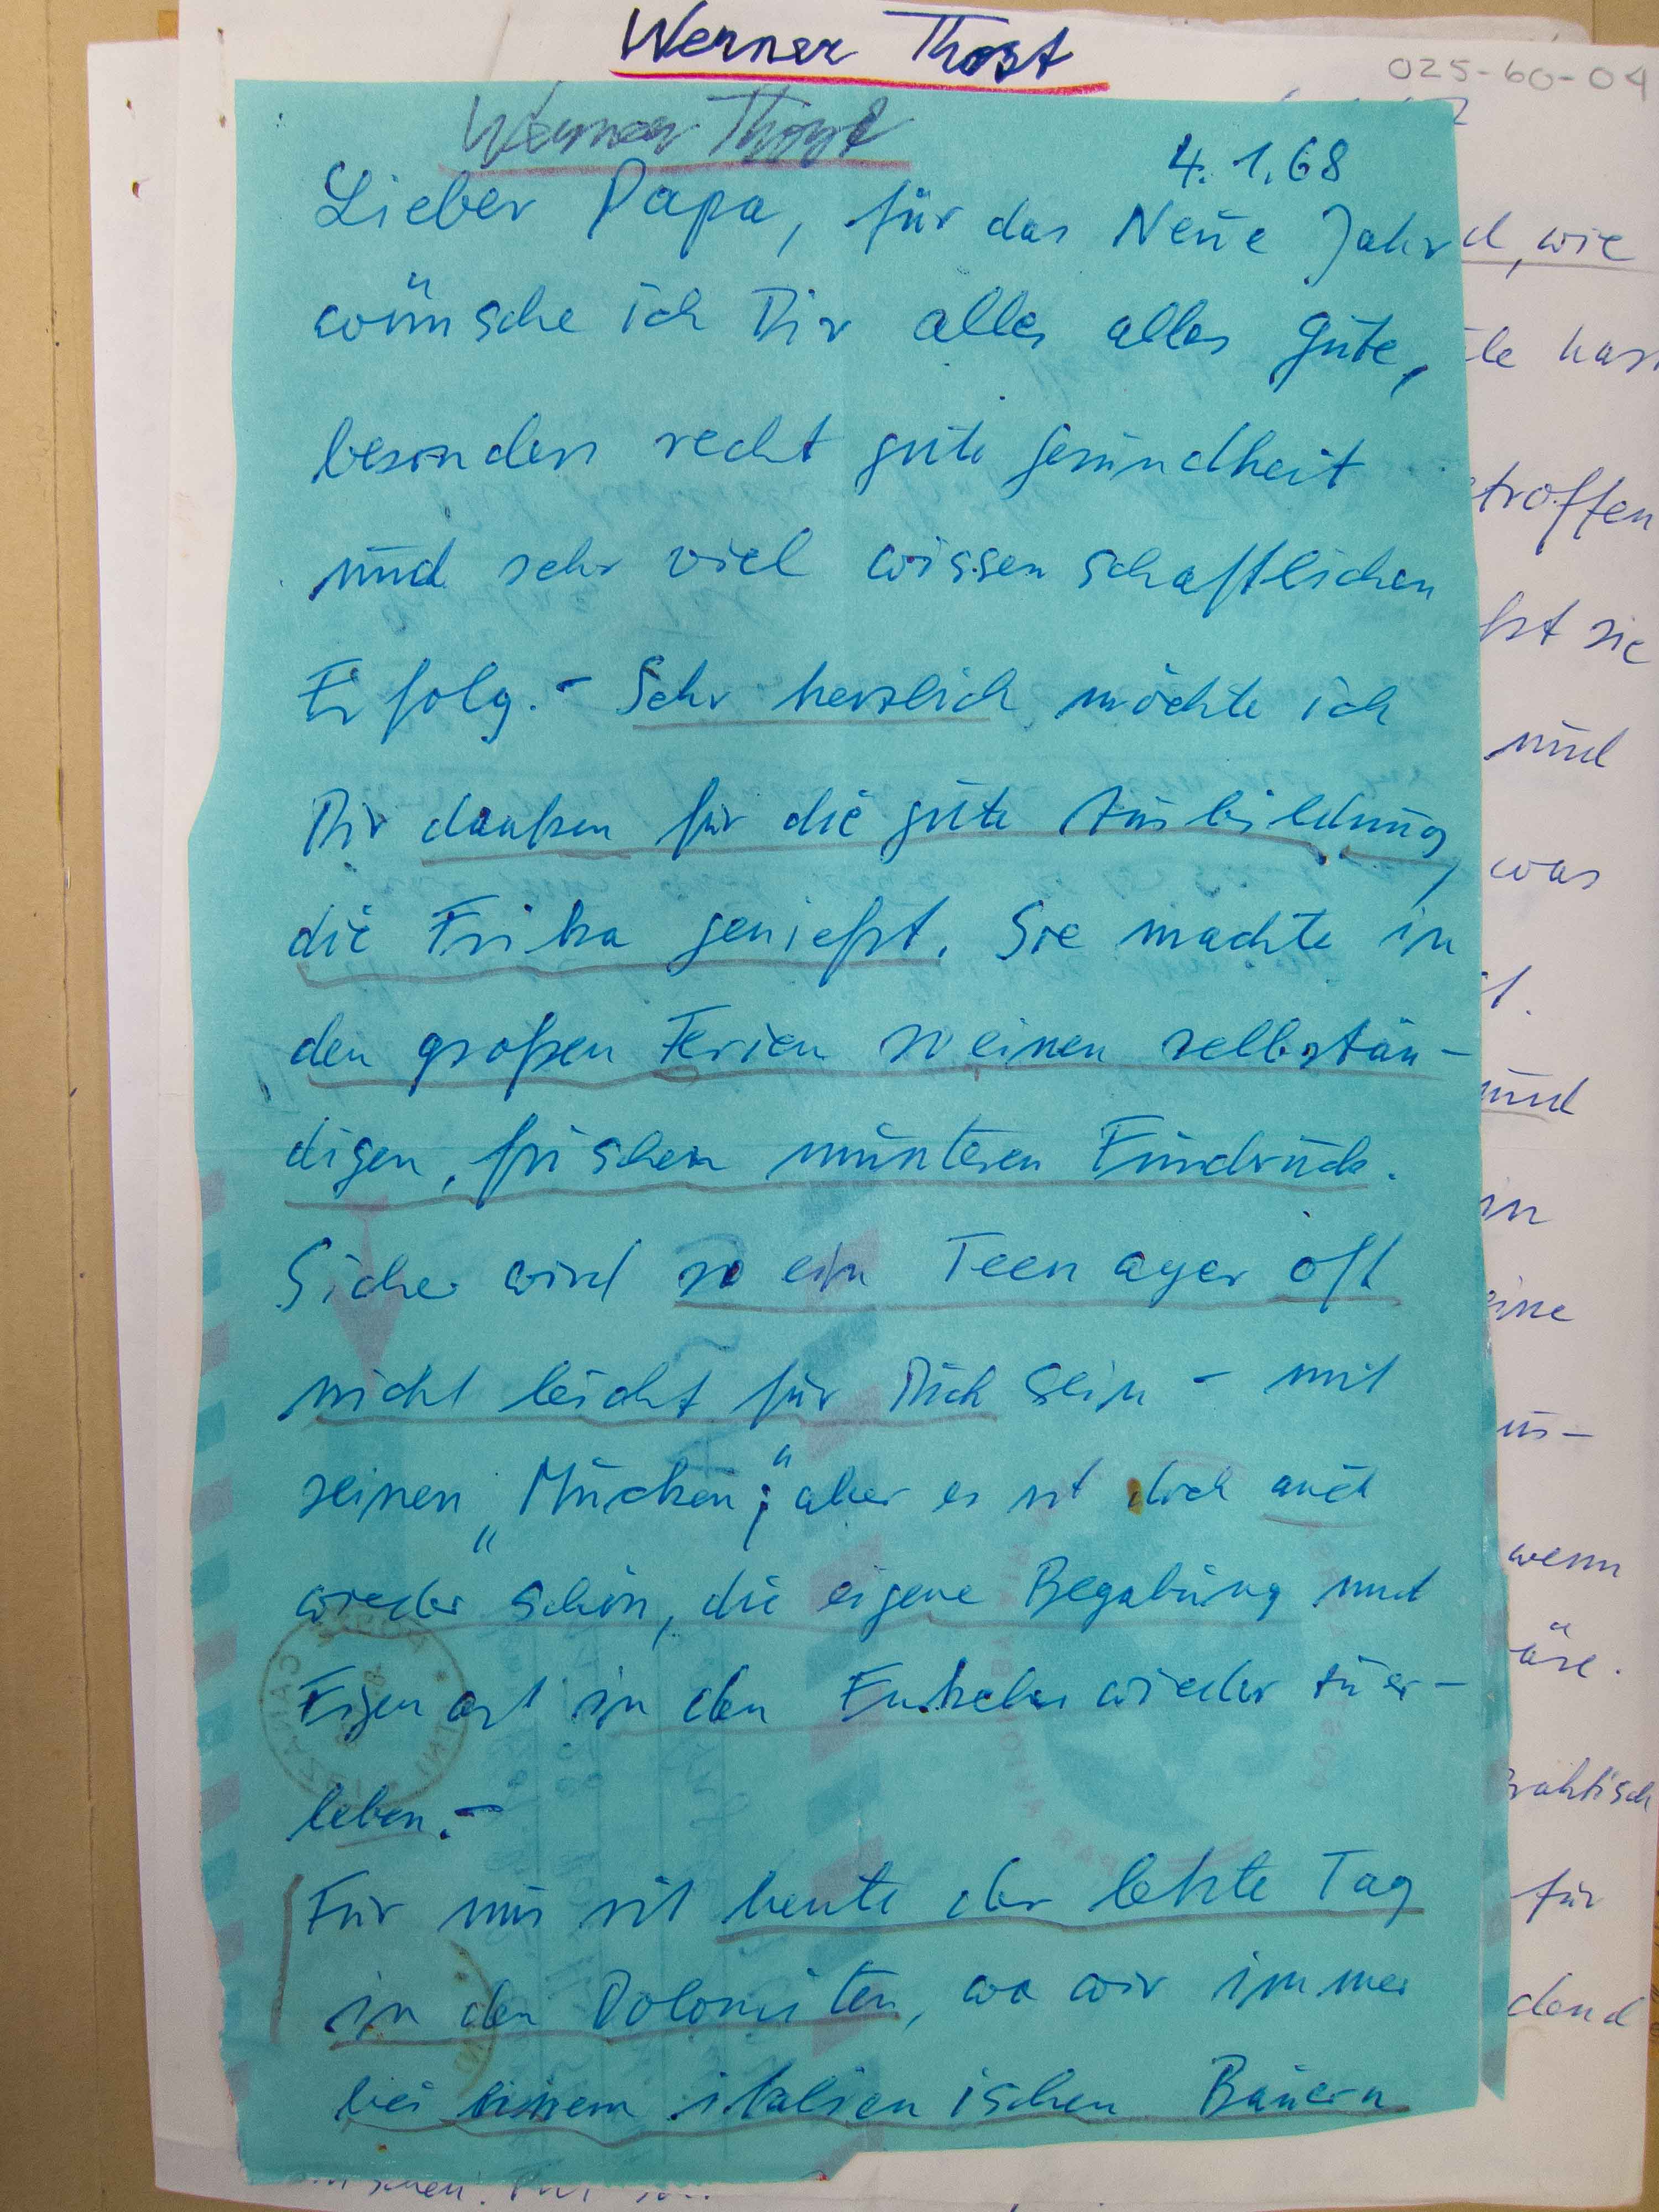 Werner Thost
025-60-04
Werner Thost
4. 1. 68
Lieber Papa, für das Neue Jahr
wünsche ich Dir alles alles Gute,
besonders recht gute Gesundheit
und sehr viel wissenschaftlichen
Erfolg. - Sehr herzlich möchte ich
Dir danken für die gute Ausbildung,
die Erika genießt. Sie machte in
den großen Ferien so einen selbstän-
digen, frischen munteren Eindruck.
Sicher wird so ein Teenager oft
nicht leicht für Dich sein - mit
seinen „Mucken“; aber es ist doch auch
wieder schön, die eigene Begabung und
Eigenart in den Enkeln wieder zu er-
leben. -
Für uns ist heute der letzte Tag
in den Dolomiten, wo wir immer
bei einem italienischen Bauern
d, wie
troffen
ßt sie
und
was
und
in
eine
us-
wenn
äre.
praktisch
für
dend